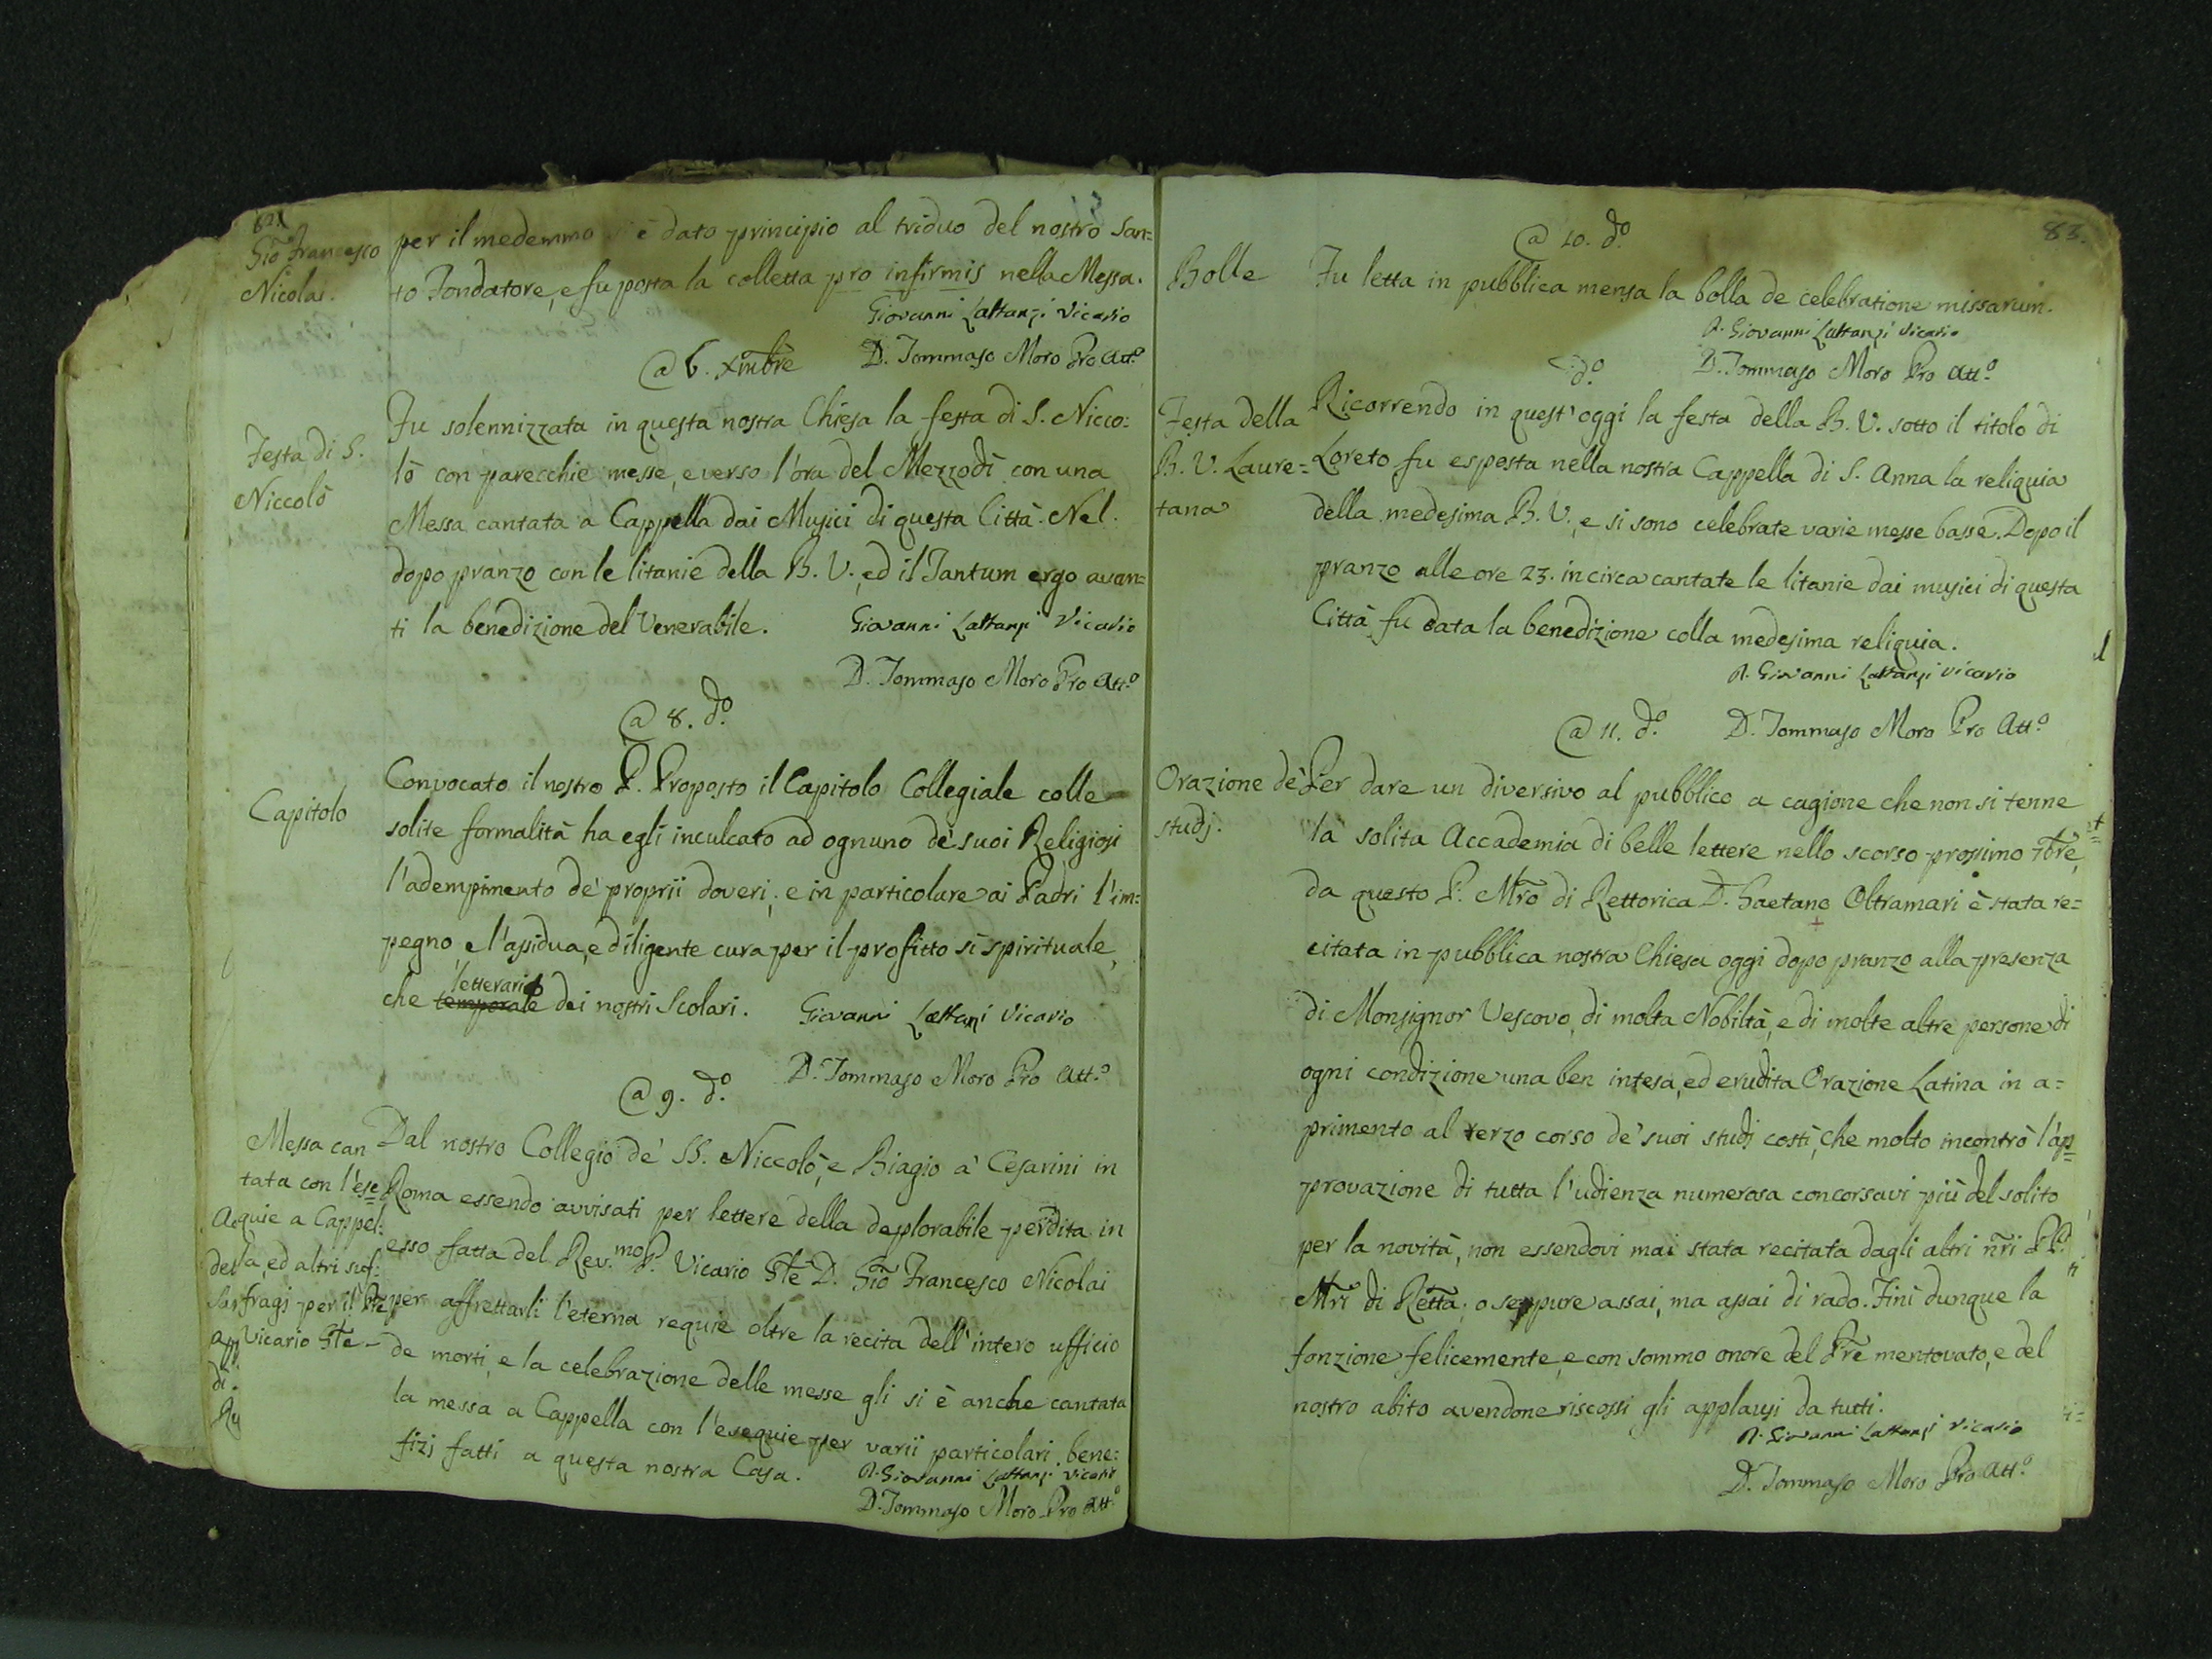 82.
Gio Francesco
Nicolai.
per il medemmo si è dato principio al triduo del nostro San=
to Fondatore, e fu posta la colletta pro infirmis nella Messa.
Giovanni Lattanzi Vicario
D. Tommaso Moro Pro Att.o
@ 6. Xmbre
Festa di S.
Niccolò
Fu solennizzata in questa nostra Chiesa la festa di S. Nicco:
lò con parecchie messe, e verso l'ora del Mezzodì con una
Messa cantata a Cappella dai Musici di questa Città. Nel
dopo pranzo con le litanie della B. V., ed il Tantum ergo avan=
ti la benedizione del Venerabile.
Giovanni Lattanzi Vicario
D. Tommaso Moro Pro Att.o
@ 8. d.o
Capitolo
Convocato il nostro P. Proposto il Capitolo Collegiale colle
solite formalità ha egli inculcato ad ognuno de' suoi Religiosi
l'adempimento de' proprii doveri; e in particolare ai Padri l'im=
pegno, e l'assidua, e diligente cura per il profitto sì spirituale,
letterario
che temporale dei nostri Scolari.
Giovanni Lattanzi Vicario
D. Tommaso Moro Pro Att.o
@ 9. d.o
Messa can
tata con l'ese
quie a Cappel:
la, ed altri suf:
fragj per il Pre
Vicario Gle
Dal nostro Collegio de' SS. Niccolò, e Biagio a' Cesarini in
Roma essendo avvisati per lettere della deplorabile perdita in
esso fatta del Rev.mo P. Vicario Gle D. Gio Francesco Nicolai
per affrettarli l'eterna requie oltre la recita dell'intero ufficio
de morti, e la celebrazione delle messe gli si è anche cantata
la messa a Cappella con l'esequie per varii particolari bene:
fizj fatti a questa nostra Casa.
D. Giovanni Lattanzi Vicario
D. Tommaso Moro Pro Att.o
83.
@ 10. d.o
Bolle
Fu letta in pubblica mensa la bolla de celebratione missarum.
D. Giovanni Lattanzi Vicario
D. Tommaso Moro Pro Att.o
d.o
Festa della
B. V. Laure=
tana
Ricorrendo in quest'oggi la festa della B. V. sotto il titolo di
Loreto fu esposta nella nostra Cappella di S. Anna la reliquia
della medesima B. V., e si sono celebrate varie messe basse. Dopo il
pranzo alle ore 23. in circa cantate le litanie dai musici di questa
Città fu data la benedizione colla medesima reliquia.
D. Giovanni Lattanzi Vicario
D. Tommaso Moro Pro Att.o
@ 11. d.o
Orazione de'
studj.
Per dare un diversivo al pubblico a cagione che non si tenne
la solita Accademia di belle lettere nello scorso prossimo 7bre,
da questo P. Mro di Rettorica D. Gaetano Oltramari è stata re=
citata in pubblica nostra Chiesa oggi dopo pranzo alla presenza
di Monsignor Vescovo, di molta Nobiltà, e di molte altre persone di
ogni condizione una ben intesa, ed erudita Orazione Latina in a=
primento al terzo corso de' suoi studj costì, che molto incontrò l'ap=
provazione di tutta l'udienza numerosa concorsavi più del solito
per la novità, non essendovi mai stata recitata dagli altri nri PP.
Mri di Retta; o seppure assai, ma assai di rado. Finì dunque la
fonzione felicemente, e con sommo onore del Pre mentovato, e del
nostro abito avendone riscossi gli applausi da tutti.
D. Giovanni Lattanzi Vicario
D. Tommaso Moro Pro Att.o